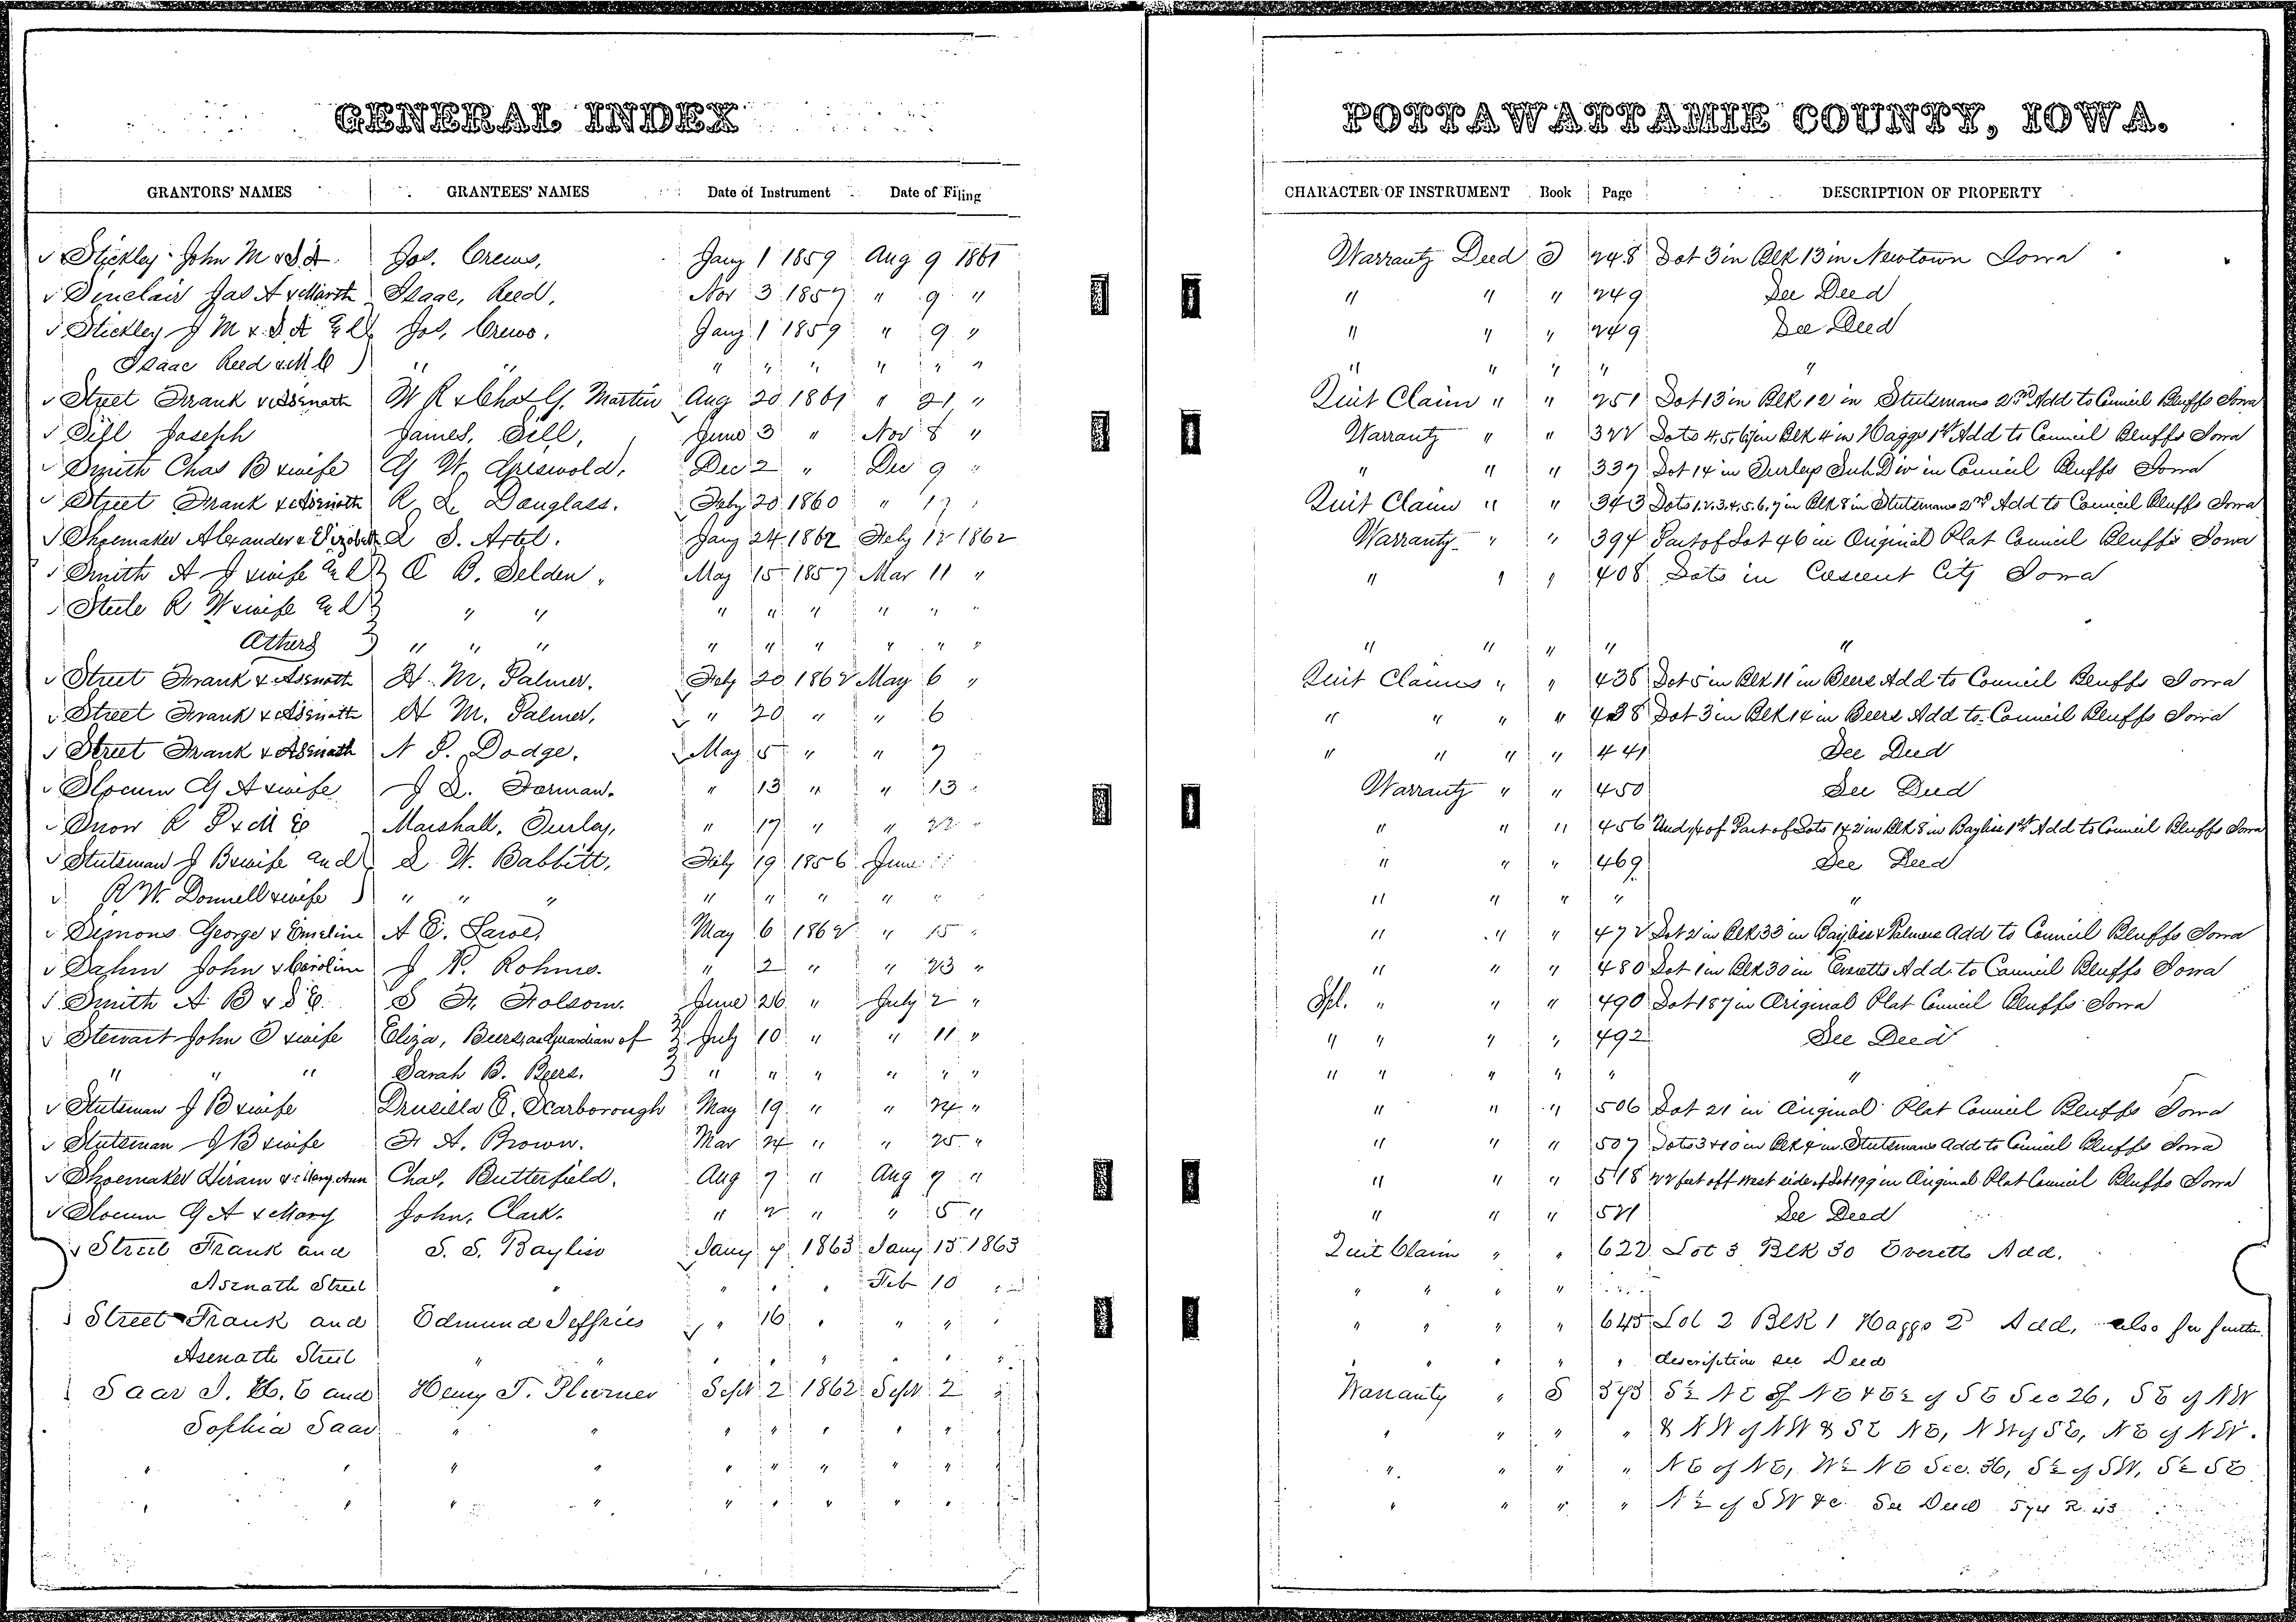 GENERAL INDEX
POTTAWATTAMIE COUNTY, IOWA.
GRANTORS' NAMES GRANTEES' NAMES Date of Instrument Date of Filing CHARACTER OF INSTRUMENT Book Page DESCRIPTION OF PROPERTY
Stickley John M & S A Jos. Crews, Jany 1 1859 Aug 9 1861 Warranty Deed 248 Lot 3 in Blk 13 in Newtown Iowa
Sinclair Jas A & Marth Isaac, Reed, Nov 3 1857 " 9 " " " " 249 See Deed
Stickley J M & S A & Jos. Crews, Jany 1 1859 " 9 " " " " 249 See Deed
Isaac Reed & M C " " " " " " " " " " " " "
Street Frank & Asenath W R & Chas G. Martin Aug 20 1861 " 21 " Quit Claim " " 251 Lot 13 in Blk 12 in Stutsmans 2nd Add to Council Bluffs Iowa
Sill Joseph James, Sill, June 3 " Nov 8 " Warranty " " 322 Lots 4,5,6,7 in Blk 4 in Haggs 1st Add to Council Bluffs Iowa
Smith Chas B & wife G W. Griswold, Dec 2 " Dec 9 " " " " 337 Lot 14 in Turleys Sub Div in Council Bluffs Iowa
Street Frank & Asenath R L Douglass. Feby 20 1860 " 17 Quit Claim " " 343 Lots 1.2.3.4.5.6.7 in Blk 8 in Stutsmans 2nd Add to Council Bluffs Iowa
Shoemaker Alexander & Elizabeth L S. Artel. Jany 24 1862 Feby 12 1862 Warranty " " 394 Part of Lot 46 in Original Plat Council Bluffs Iowa
Smith A J & wife C B. Selden, May 15 1857 Mar 11 " " " " 408 Lots in Crescent City Iowa
Steele R W & wife " " " " " " " "
Others " " " " " " " " " " " " " " "
Street Frank & Asenath H. M. Palmer. Feby 20 1862 May 6 " Quit Claims " " 438 Lot 5 in Blk 11 in Beers Add to Council Bluffs Iowa
Street Frank & Asenath H M. Palmer, " 20 " " 6 " " " " 438 Lot 3 in Blk 14 in Beers Add to Council Bluffs Iowa
Street Frank & Asenath N P. Dodge. May 5 " " 7 " " " " 441 See Deed
Slocum G A & wife J D. Forman. " 13 " " 13 " Warranty " " 450 See Deed
Snow R P & M E Marshall, Turley, " 17 " " 22 " " " " 456 Und 1/4 of Part of Lots 1 & 2 in Blk 8 in Bayliss 1st Add to Council Bluffs Iowa
Stutsman J B & wife and L W. Babbitt, Feby 19 1856 June " " " 469 See Deed
R W. Donnell & wife " " " " " " " " " " " " " "
Simons George & Emeline A E. May 6 1862 " 15 " " " " 472 Lot 2 in Blk 33 in Bayliss & Palmers Add to Council Bluffs Iowa
Dahm John & Caroline J N. Rohme. " 2 " " 23 " " " " 480 Lot 1 in Blk 30 in Everetts Add to Council Bluffs Iowa
Smith A B & S E. S H. Folsom. June 26 " July 2 " Spl. " " " 490 Lot 187 in Original Plat Council Bluffs Iowa
Stewart John T & wife Eliza, Beers, as Guardian of July 10 " " 11 " " " " " 492 See Deed
" " " Sarah B. Beers. " " " " " " " " " " " "
Stutsman J B & wife Drusilla E. Scarborough May 19 " " 24 " " " " 506 Lot 21 in Original Plat Council Bluffs Iowa
Stutsman J B & wife H A. Brown. Mar 24 " " 25 " " " " 507 Lots 3 & 10 in Blk 4 in Stutsmans Add to Council Bluffs Iowa
Shoemaker Hiram & Mary Ann Chas, Butterfield. Aug 7 " Aug 7 " " " " 518 22 feet off west side of Lot 199 in Original Plat Council Bluffs Iowa
Slocum G A & Mary John, Clark. " 2 " " 5 " " " " 521 See Deed
Street Frank and S. S. Bayliss Jany 7 1863 Jany 15 1863 Quit Claim " " 622 Lot 3 Blk 30 Everetts Add.
Asenath Street " " " " Feb 10 " " " " "
Street Frank and Edmund Jeffries " 16 " " " " " " " 645 Lot 2 Blk 1 Haggs 2d Add, also for further
Asenath Street " " " " " " " " " " " " " description see Deed
Saar J. H. E and Henry T. Plumer Sept 2 1862 Sept 2 " Warranty " S 573 S½ NE of NE & E½ of SE Sec 26, SE of NW
Sophia Saar " " " " " " " " " " " & NW of NW & SE NE, NW of SE, NE of NW.
" " " " " " " " " " " " " NE of NE, W½ NE Sec. 36, S½ of SW, S½ SE
" " " " " " " " " " " " " N½ of SW &c. See Deed 574 R. 43